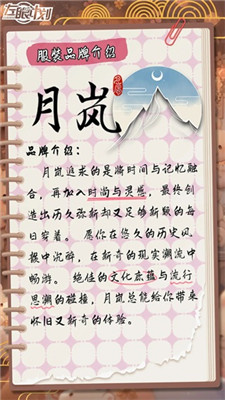 左眼计划
服装品牌介绍
月岚
品牌介绍：
月岚追求的是将时间与记忆融
合，再加入时尚与灵感，最终创
造出历久弥新却又足够新颖的每
日穿着。愿你在悠久的历史风
貌中沉醉，在新奇的现实潮流中
畅游。绝佳的文化底蕴与流行
思潮的碰撞，月岚总能给你带来
怀旧又新奇的体验。